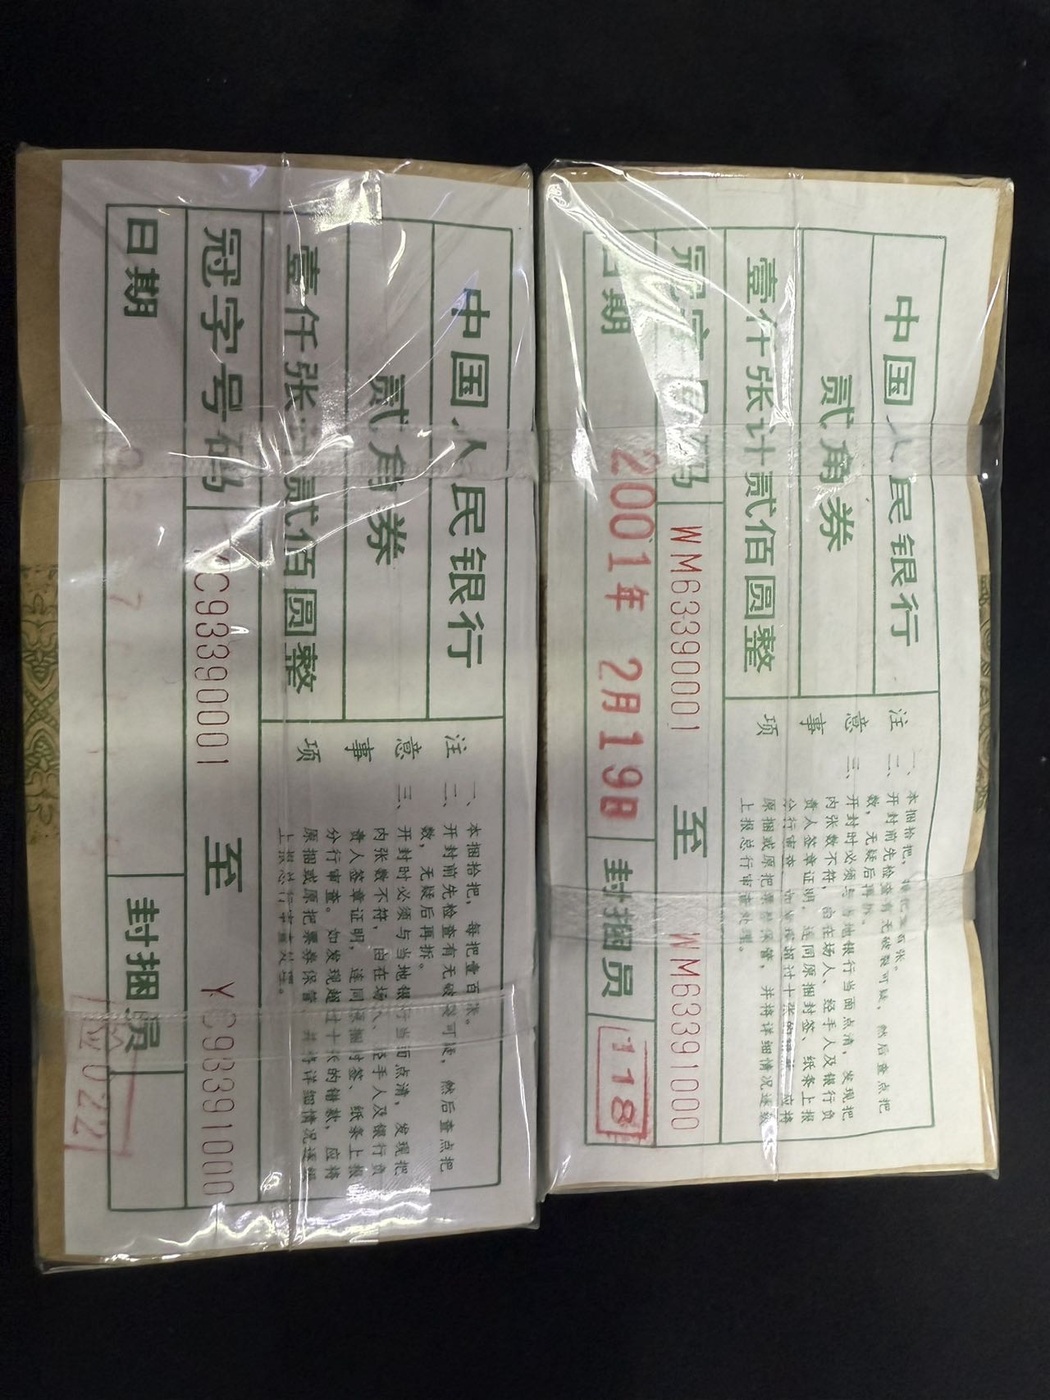 中国人民银行
贰角券
壹仟张计贰佰圆整
冠字号码
YC98390001
至
YC98391000
日期
封捆员
验022
注意事项
一、本捆拾把，每把壹百张。
二、开封前先检查有无破裂可疑，然后查点把
数，无疑后再拆。
三、开封时必须与当地银行当面点清，发现把
内张数不符，由在场人、经手人及银行负
责人签章证明，连同原捆封签、纸条上报
分行审查。如发现超过十张的错款，应将
原捆或原把票券保管，并将详细情况逐级
中国人民银行
贰角券
壹仟张计贰佰圆整
冠字号码
WM63390001
至
WM63391000
日期
2001年 2月19日
封捆员
118
注意事项
一、本捆拾把，每把壹百张。
二、开封前先检查有无破裂可疑，然后查点把
数，无疑后再拆。
三、开封时必须与当地银行当面点清，发现把
内张数不符，由在场人、经手人及银行负
责人签章证明，连同原捆封签、纸条上报
原捆或原把票券保管，并将详细情况逐级
上报总行审查处理。